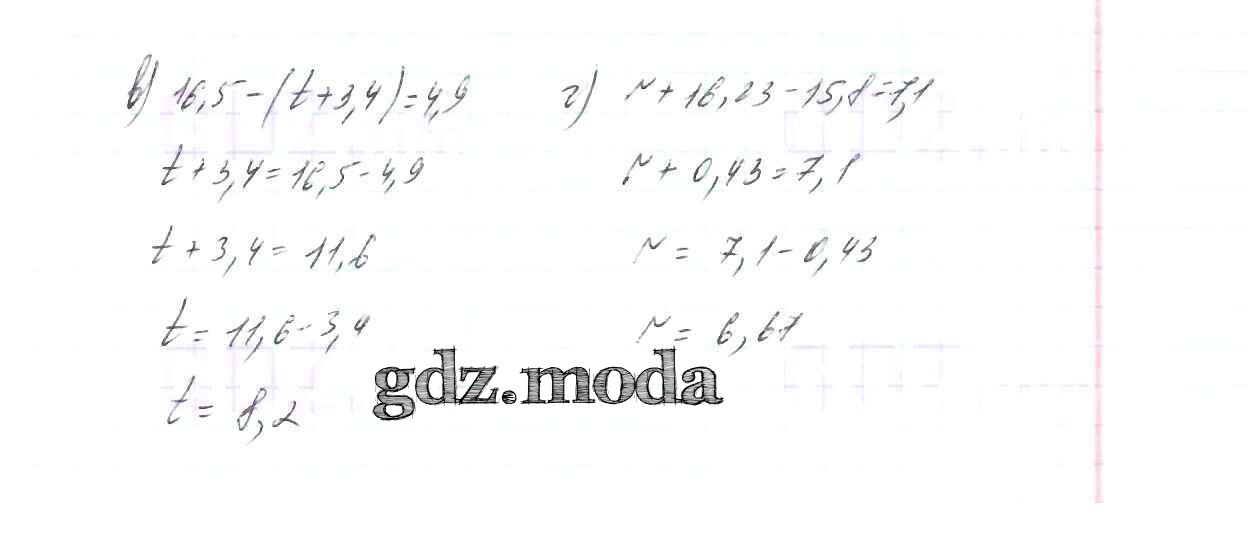 в) 16,5-(t+3,4)=4,9
t+3,4=16,5-4,9
t+3,4=11,6
t=11,6-3,4
t=8,2
г) r+16,23-15,8=7,1
r+0,43=7,1
r=7,1-0,43
r=6,67
gdz.moda